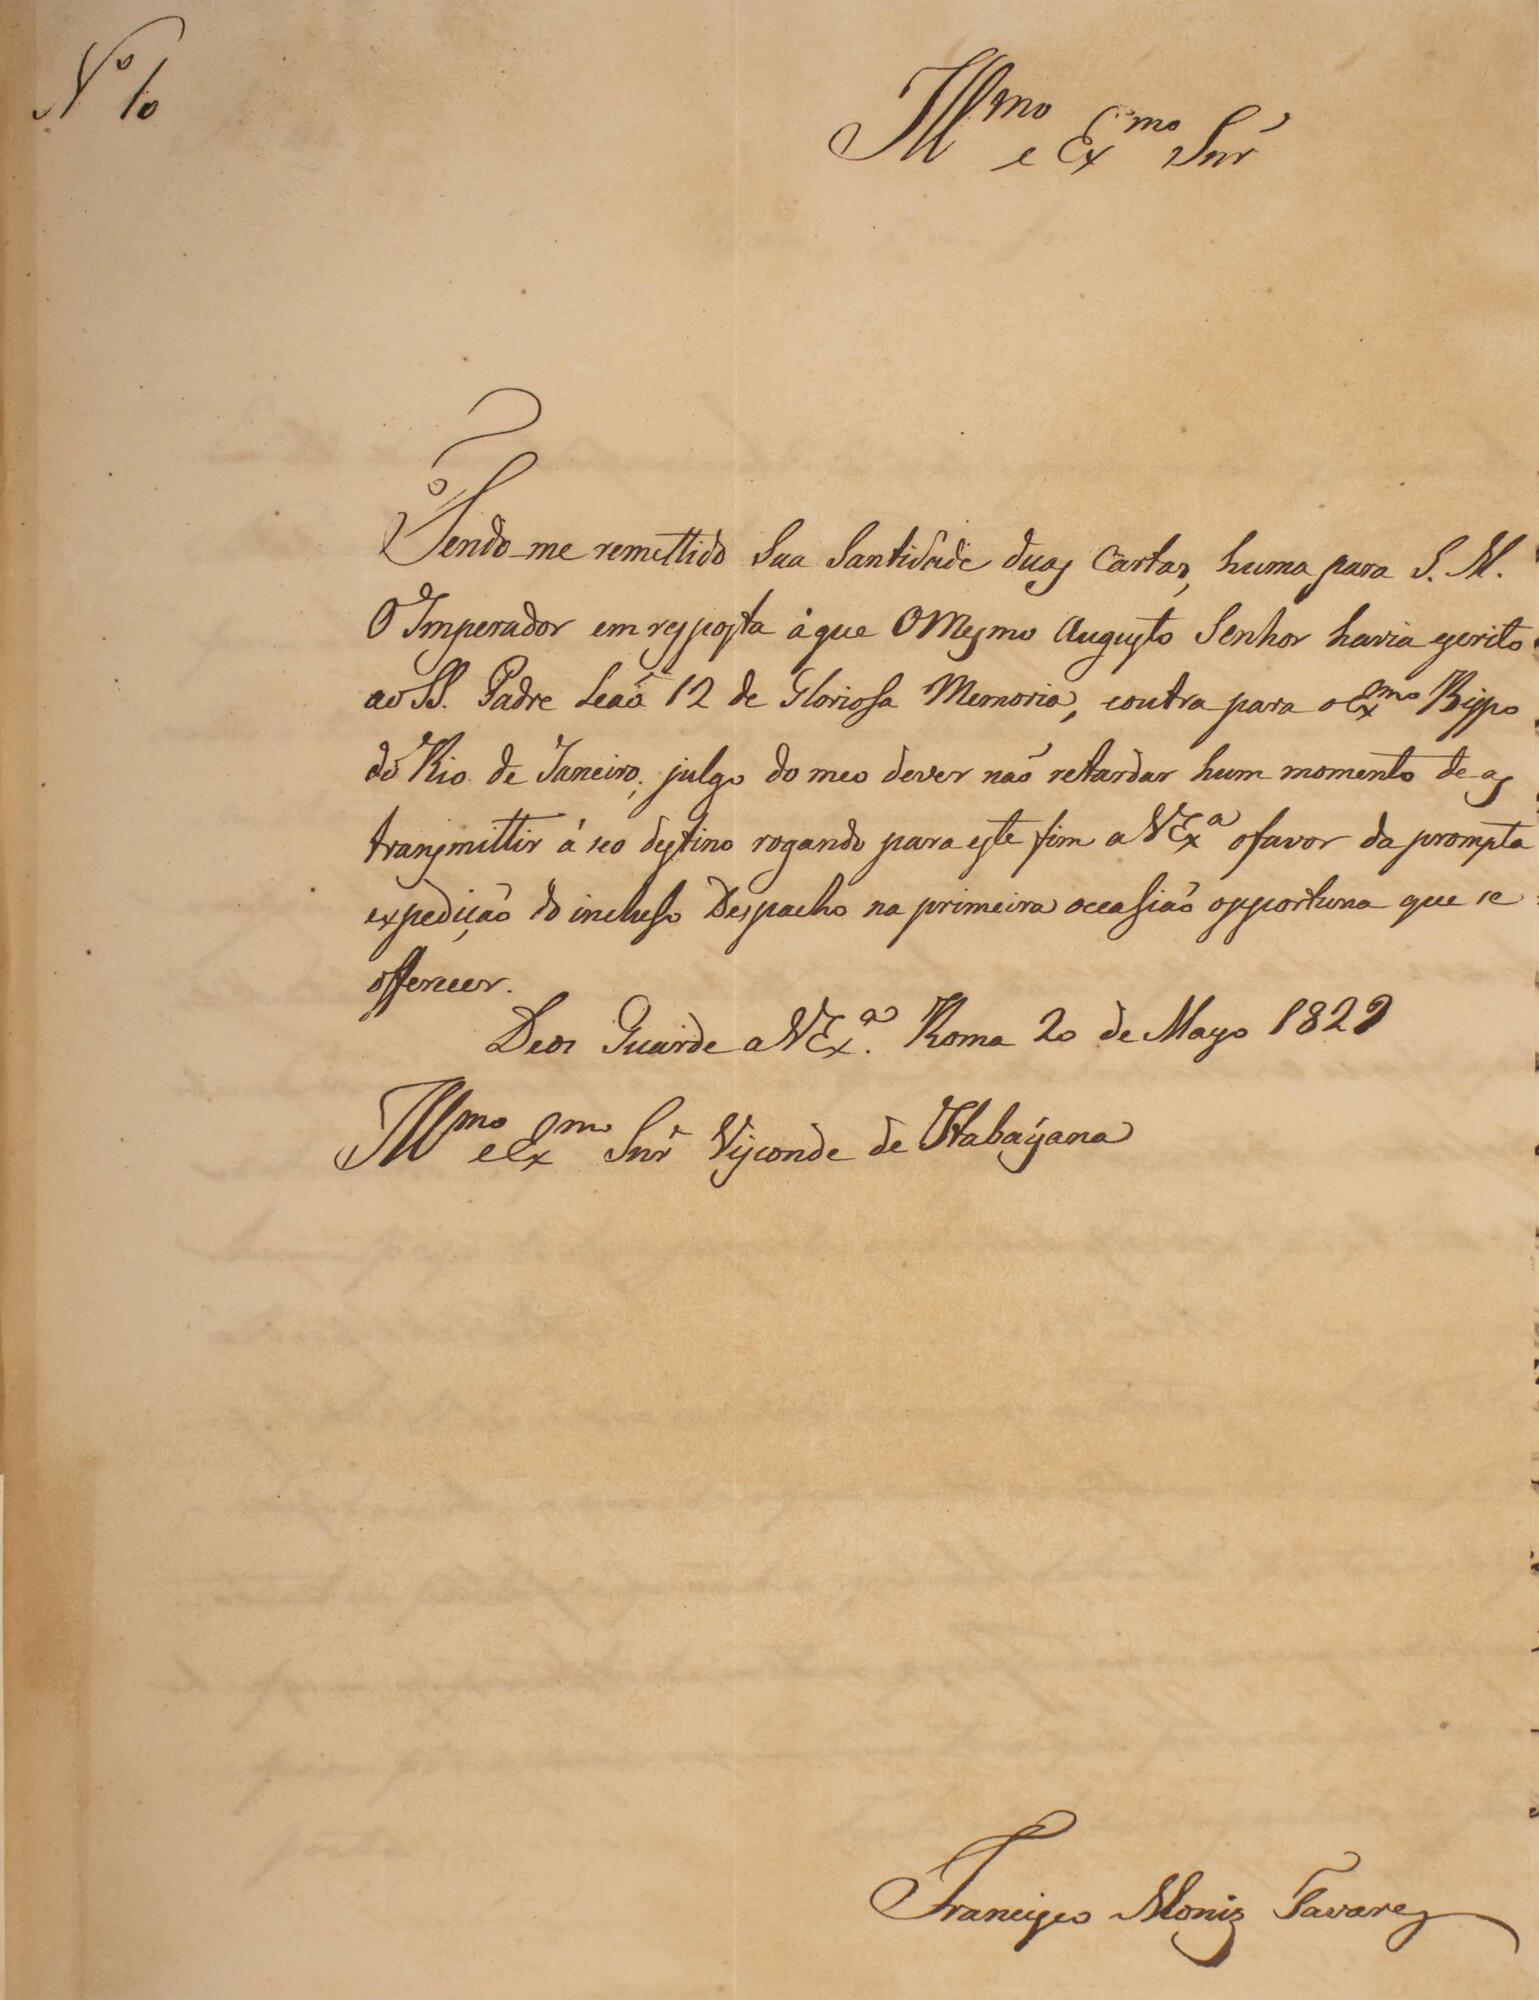 Nº 10
Illmo e Exmo Snr
Tendo-me remettido Sua Santidade duas Cartas, huma para S. M.
O Imperador em resposta á que O Mesmo Augusto Senhor havia escrito
ao SS. Padre Leaõ 12 de Gloriosa Memoria, e outra para o Exmo Bispo
do Rio de Janeiro; julgo do meo dever naõ retardar hum momento de as
transmittir á seo destino rogando para este fim a V Exª o favor da prompta
expediçaõ do incluso Despacho na primeira occasiaõ opportuna que se
offerecer.
Deos Guarde a V Exª. Roma 20 de Mayo 1829
Illmo e Exmo Snr Visconde de Itabaÿana
Francisco Moniz Tavares